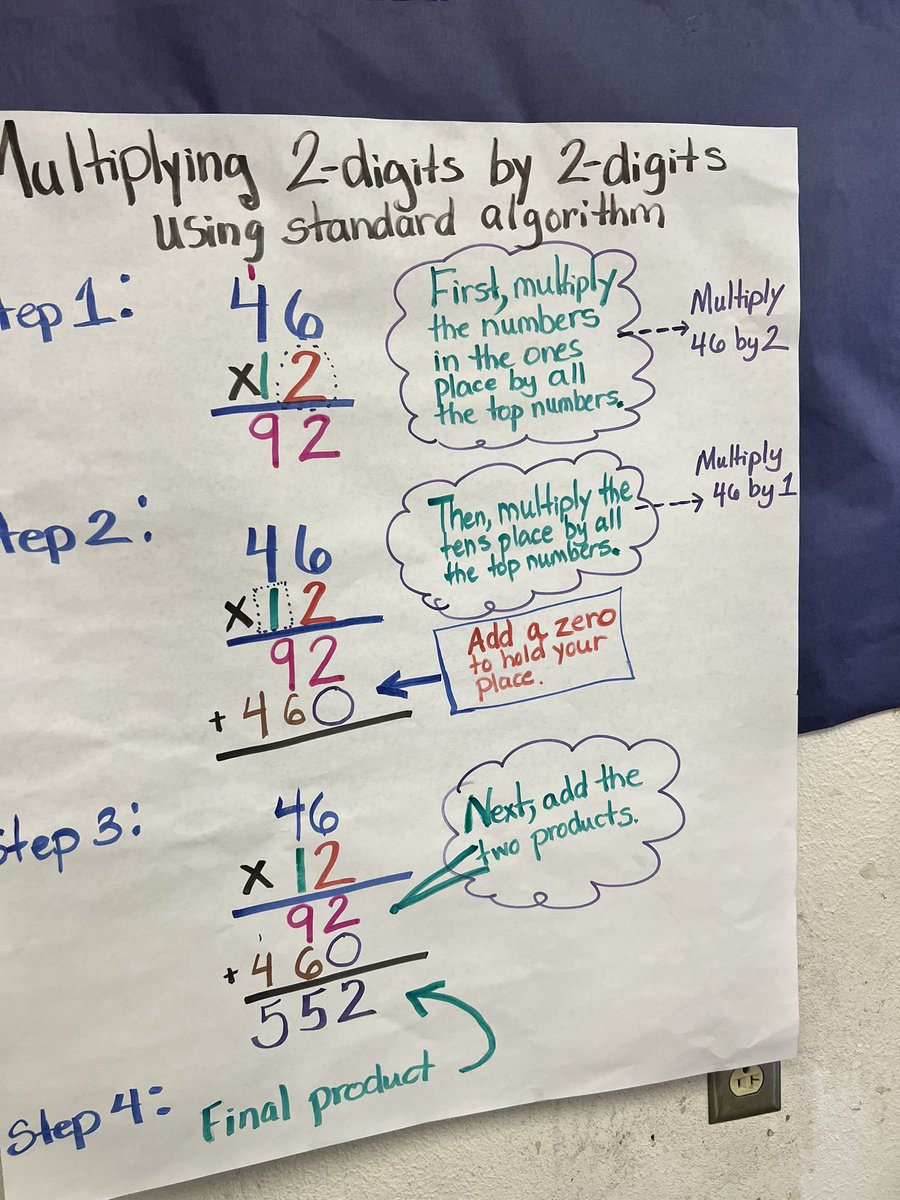 Multiplying 2-digits by 2-digits
using standard algorithm
Step 1:
1
46
x12
92
First, multiply
the numbers
in the ones
place by all
the top numbers.
Multiply
46 by 2
Step 2:
46
x12
92
+460
Then, multiply the
tens place by all
the top numbers.
Multiply
46 by 1
Add a zero
to hold your
place.
Step 3:
46
x 12
92
1
+460
552
Next, add the
two products.
Step 4: Final product